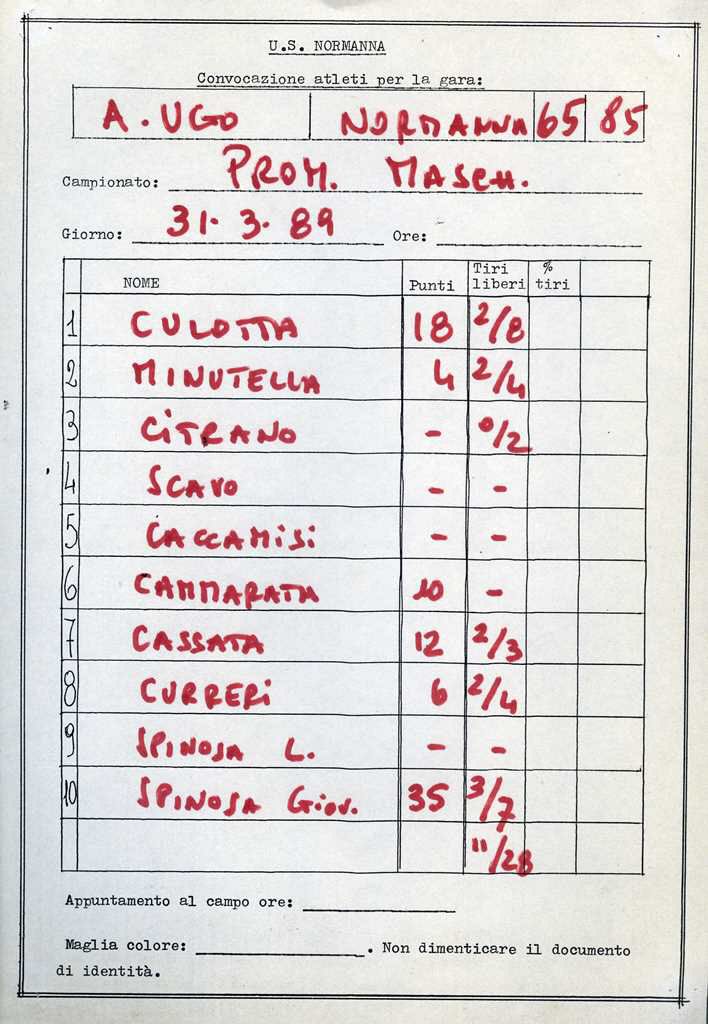 U.S. NORMANNA
Convocazione atleti per la gara:
A. UGO NORMANNA 65 85
Campionato: PROM. MASCH.
Giorno: 31. 3. 89 Ore:
NOME Punti Tiri liberi % tiri
1 CULOTTA 18 2/8
2 MINUTELLA 4 2/4
3 CITRANO - 0/2
4 SCAVO - -
5 CACCAMISI - -
6 CAMMARATA 10 -
7 CASSATA 12 2/3
8 CURRERI 6 2/4
9 SPINOSA L. - -
10 SPINOSA GIOV. 35 3/7
11/28
Appuntamento al campo ore:
Maglia colore: . Non dimenticare il documento
di identità.